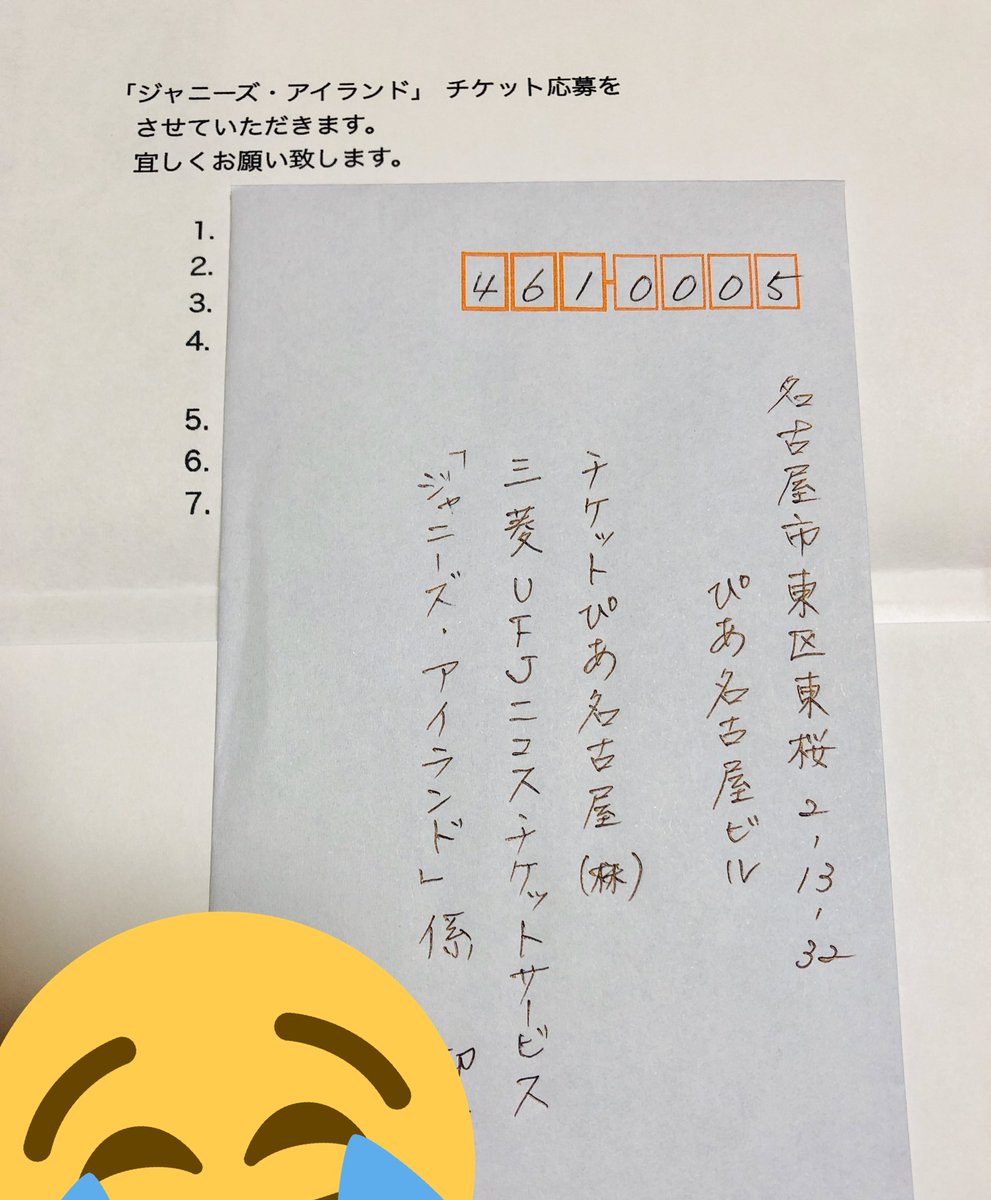 「ジャニーズ・アイランド」 チケット応募を
させていただきます。
宜しくお願い致します。
1.
2.
3.
4.
5.
6.
7.
4610005
名古屋市東区東桜2-13-32
ぴあ名古屋ビル
チケットぴあ名古屋(株)
三菱UFJニコスチケットサービス
「ジャニーズ・アイランド」係